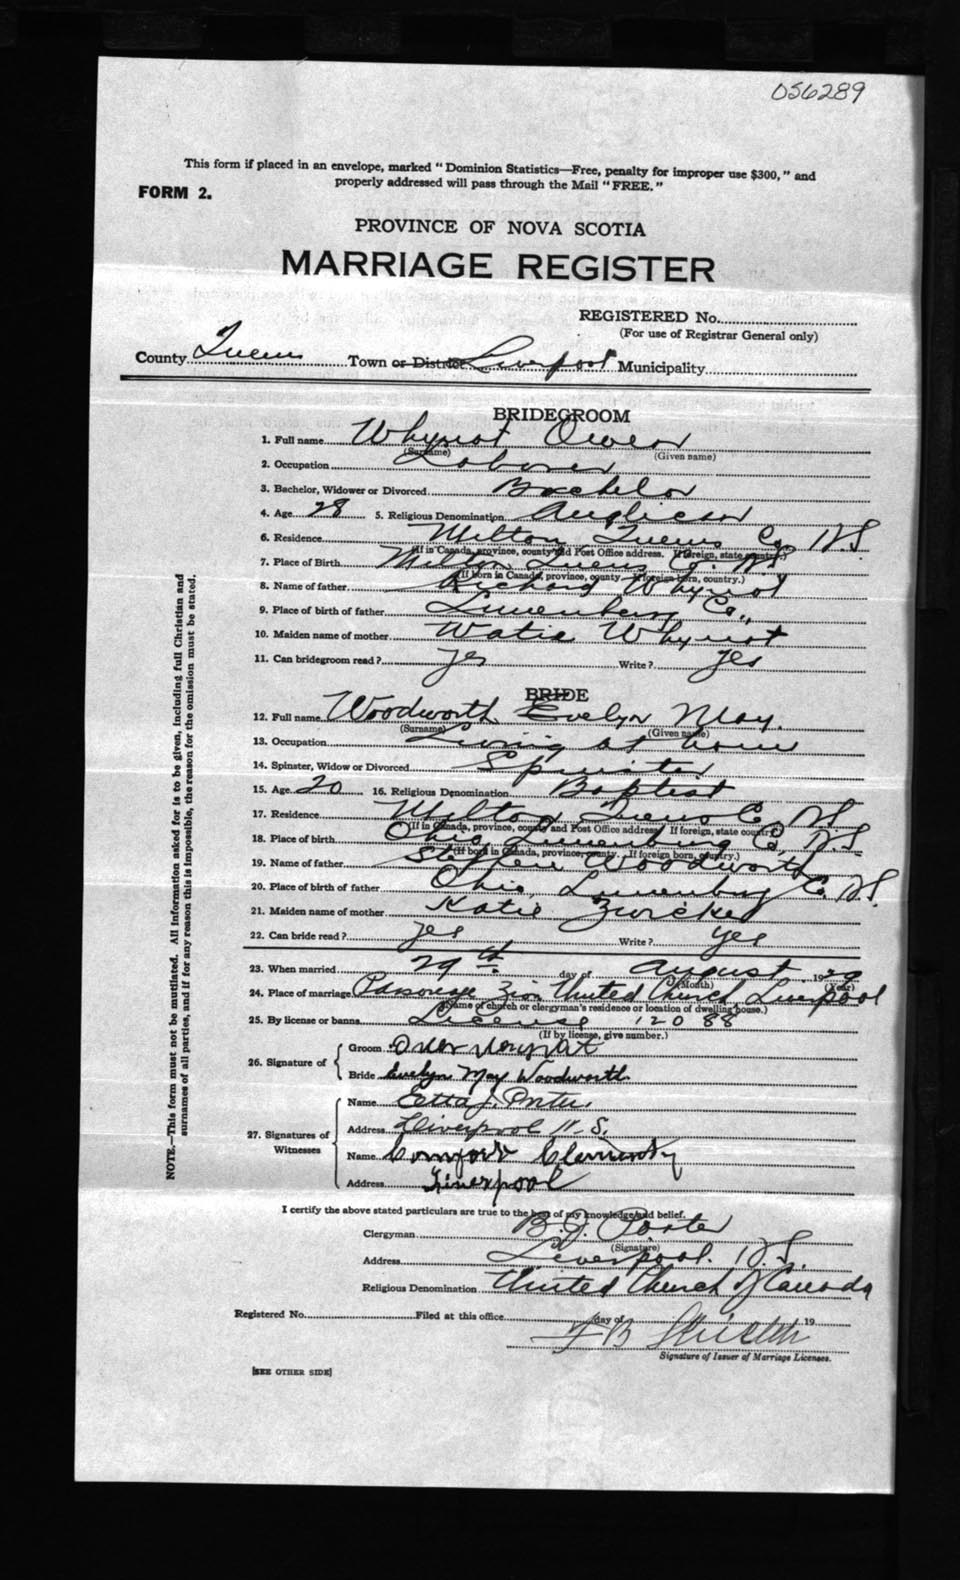 056289
This form if placed in an envelope, marked "Dominion Statistics—Free, penalty for improper use $300," and
properly addressed will pass through the Mail "FREE."
FORM 2.
PROVINCE OF NOVA SCOTIA
MARRIAGE REGISTER
REGISTERED No.
(For use of Registrar General only)
County Queens Town or District Liverpool Municipality
BRIDEGROOM
1. Full name Whynot Owen
(Surname) (Given name)
2. Occupation Laborer
3. Bachelor, Widower or Divorced Bachelor
4. Age 28 5. Religious Denomination Anglican
6. Residence Milton, Queens Co. N.S.
(If in Canada, province, county and Post Office address. If foreign, state country.)
7. Place of Birth Milton Queens Co. N.S.
(If born in Canada, province, county. If foreign born, country.)
8. Name of father Richard Whynot
9. Place of birth of father Lunenburg Co.,
10. Maiden name of mother Watie Whynot
11. Can bridegroom read? yes Write? yes
BRIDE
12. Full name Woodworth Evelyn May.
(Surname) (Given name)
13. Occupation Living at home
14. Spinster, Widow or Divorced Spinster
15. Age 20 16. Religious Denomination Baptist
17. Residence Milton Queens Co. N.S.
(If in Canada, province, county and Post Office address. If foreign, state country.)
18. Place of birth Ohio, Lunenburg Co, N.S.
(If born in Canada, province, county. If foreign born, country.)
19. Name of father Stephen Woodworth
20. Place of birth of father Ohio, Lunenburg Co. N.S.
21. Maiden name of mother Katie Zwicker
22. Can bride read? yes Write? yes
23. When married 29th day of August 1929
(Month) (Year)
24. Place of marriage Parsonage Zion United Church, Liverpool
(Name of church or clergyman's residence or location of dwelling house.)
25. By license or banns License 12088
(If by license, give number.)
26. Signature of
Groom Owen Whynot
Bride Evelyn May Woodworth
27. Signatures of Witnesses
Name Etta J. Porter
Address Liverpool N.S.
Name
Address Liverpool
I certify the above stated particulars are true to the best of my knowledge and belief.
Clergyman B.J. Porter
(Signature)
Address Liverpool. N.S.
Religious Denomination United Church of Canada
Registered No. Filed at this office day of 19
Signature of Issuer of Marriage Licenses.
[SEE OTHER SIDE]
NOTE.—This form must not be mutilated. All information asked for is to be given, including full Christian and
surnames of all parties, and if for any reason this is impossible, the reason for the omission must be stated.